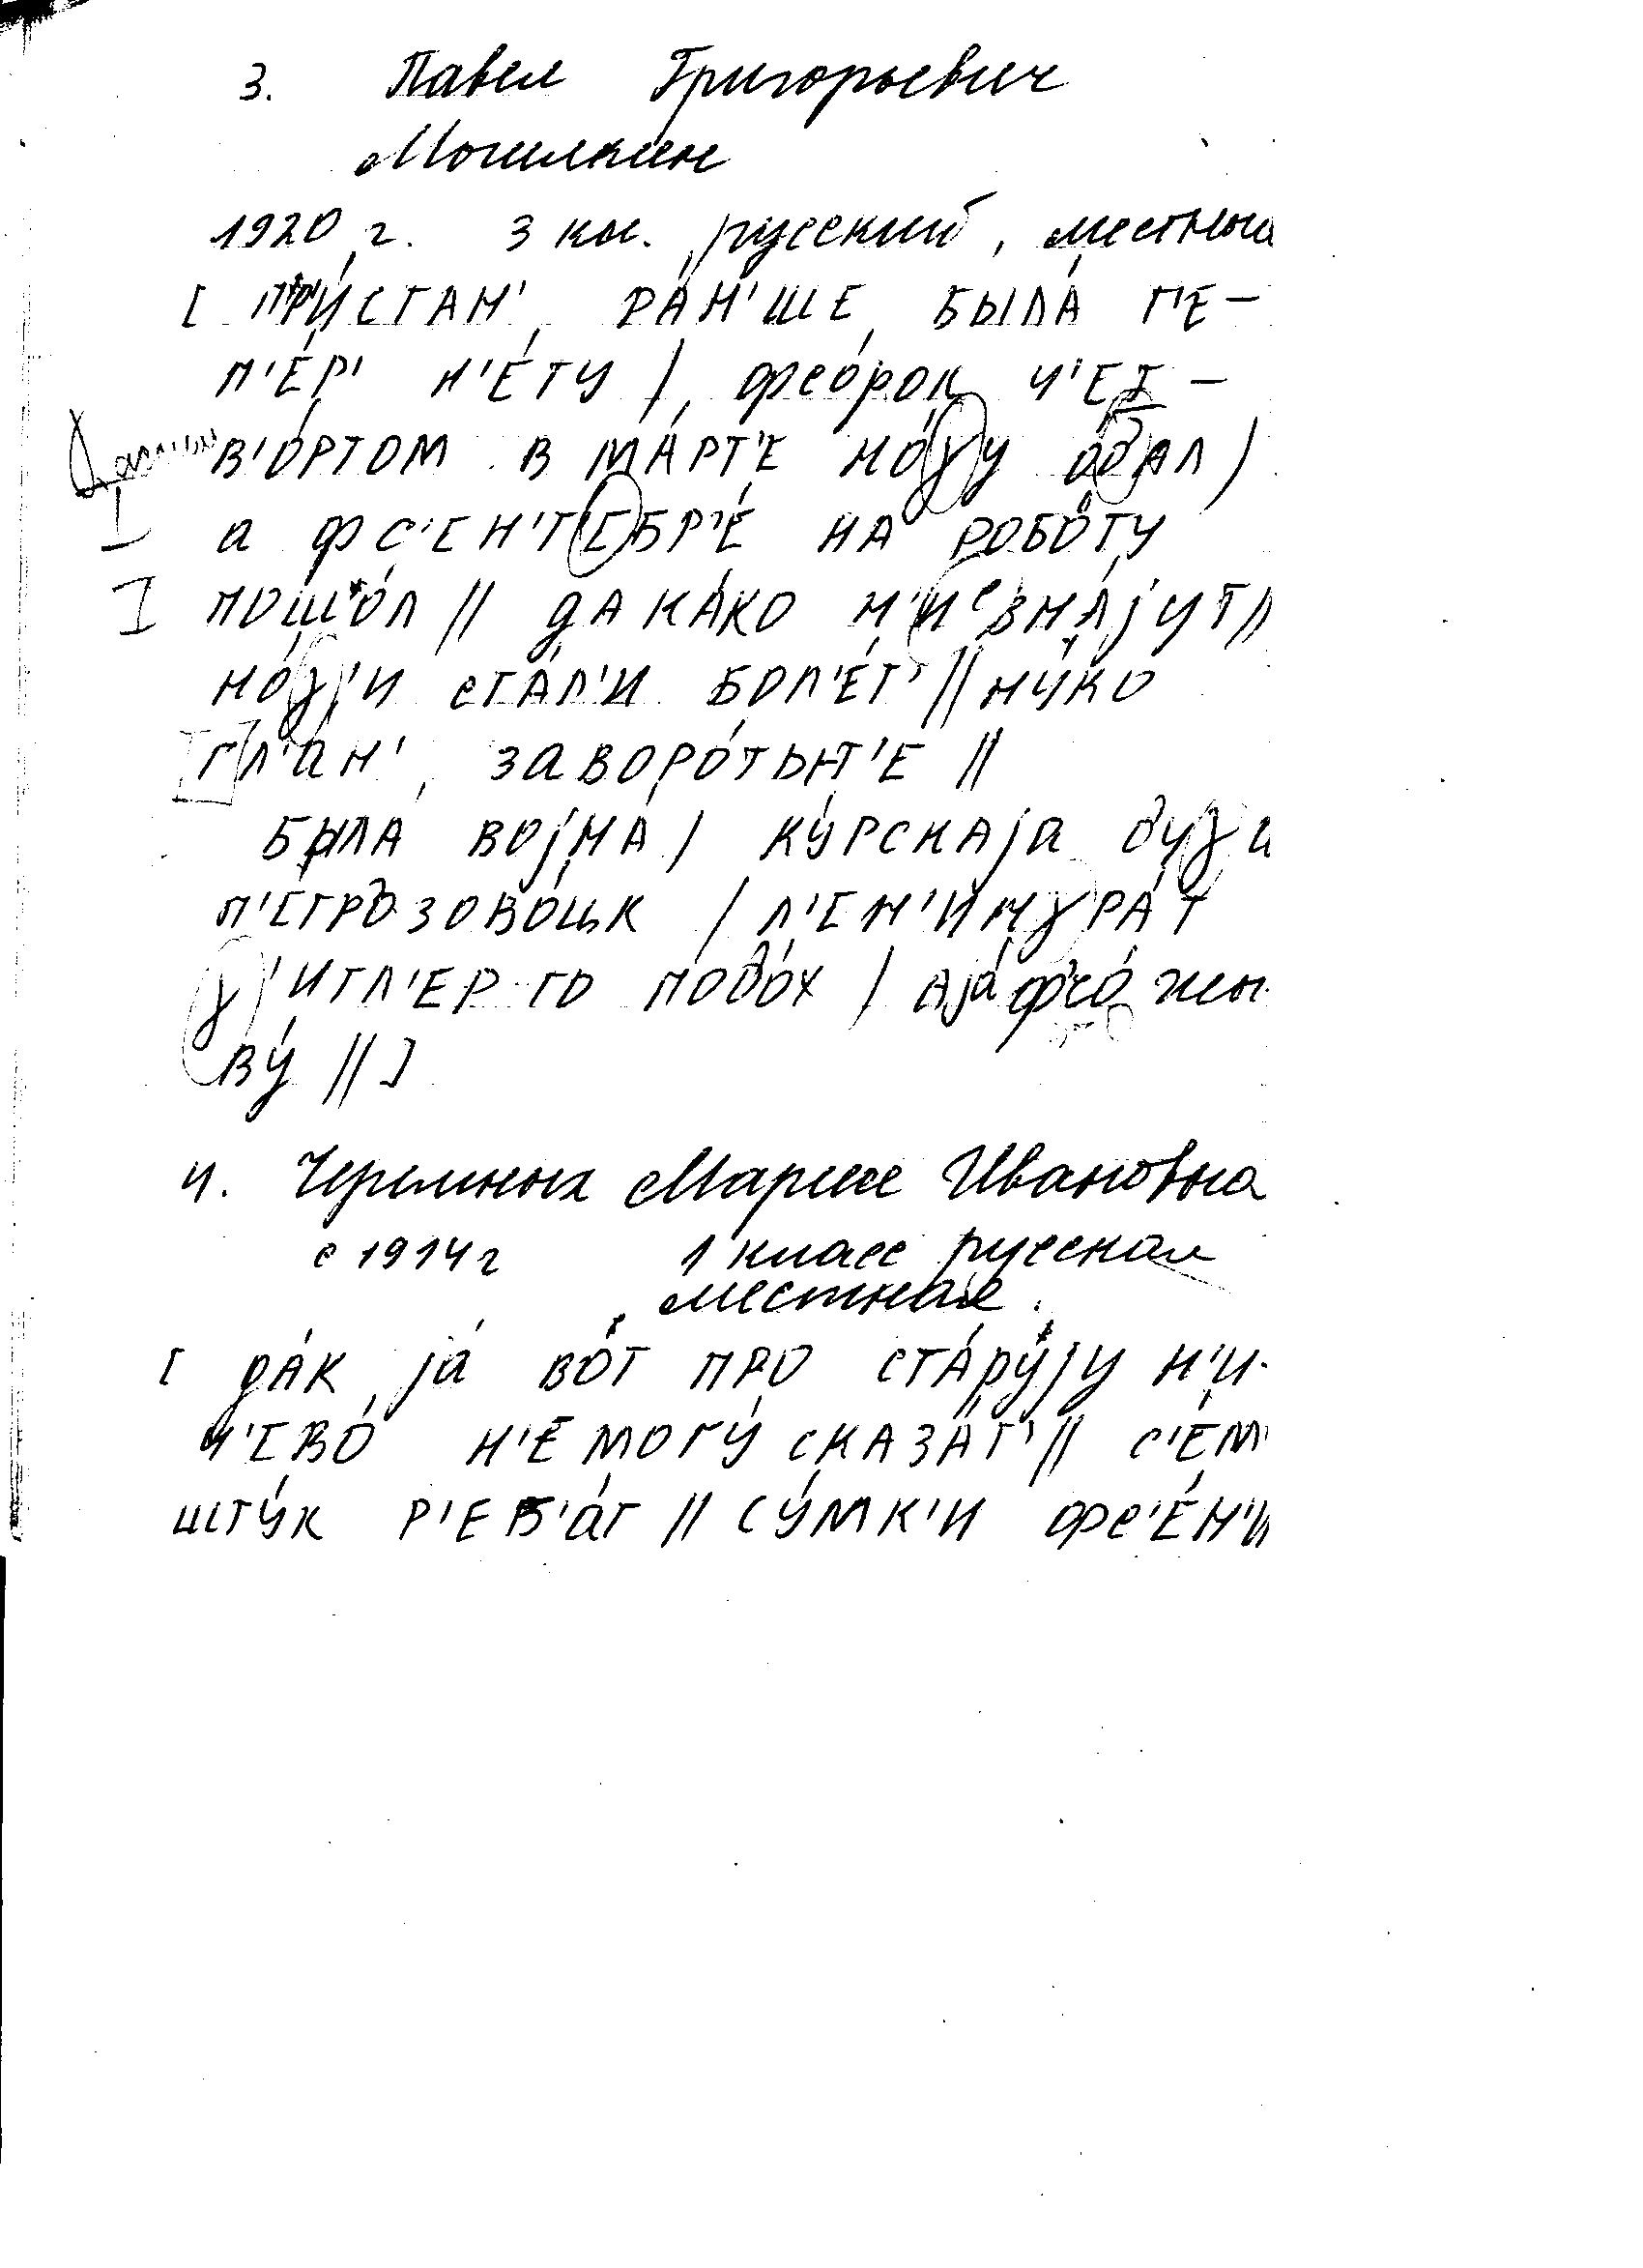 3. Павел Григорьевич
Могилкин
1920 г. 3 кл. русский, местный
[ ПРИ́СТАН' РА́Н'ШЕ БЫЛА́ Т'Е-
П'Е́Р' Н'Е́ТУ / фсо́рок Ч'ЕТ-
В'О́РТОМ В МА́РТ'Е НО́γУ одАЛ /
а ф С'ЕН'Т'ЕБР'Е́ НА РОБО́ТУ
ПОШ'О́Л // дАКА́КО Н'И ЗНА́jУТ //
НО́γ'И СТА́Л'И БОЛ'Е́Т' // НУ́КО
ГЛ'а́Н' ЗаВОРО́ТЫТ'Е //
БЫЛА́ ВОjНА́ / КУ́РСКАjа дуγа
П'ЕТРОЗОВО́ЦЫК / Л'ЕН'ИНγРА́Т
γ'ИТЛ'ЕР ТО ПОдО́Х / Аjа́ фс'о́ жы
ВУ́ // ]
4. Черемных Мария Ивановна
с 1914 г 1 класс русская
местная.
[ дА́К jа́ ВО́Т ПРО СТА́РУjУ Н'И-
Ч'ЕВО́ Н'Е МОГУ́ СКАЗА́Т' // С'Е́М'
ШТУ́К Р'ЕБ'а́Т // СУ́МК'И фс'Е́Н'И